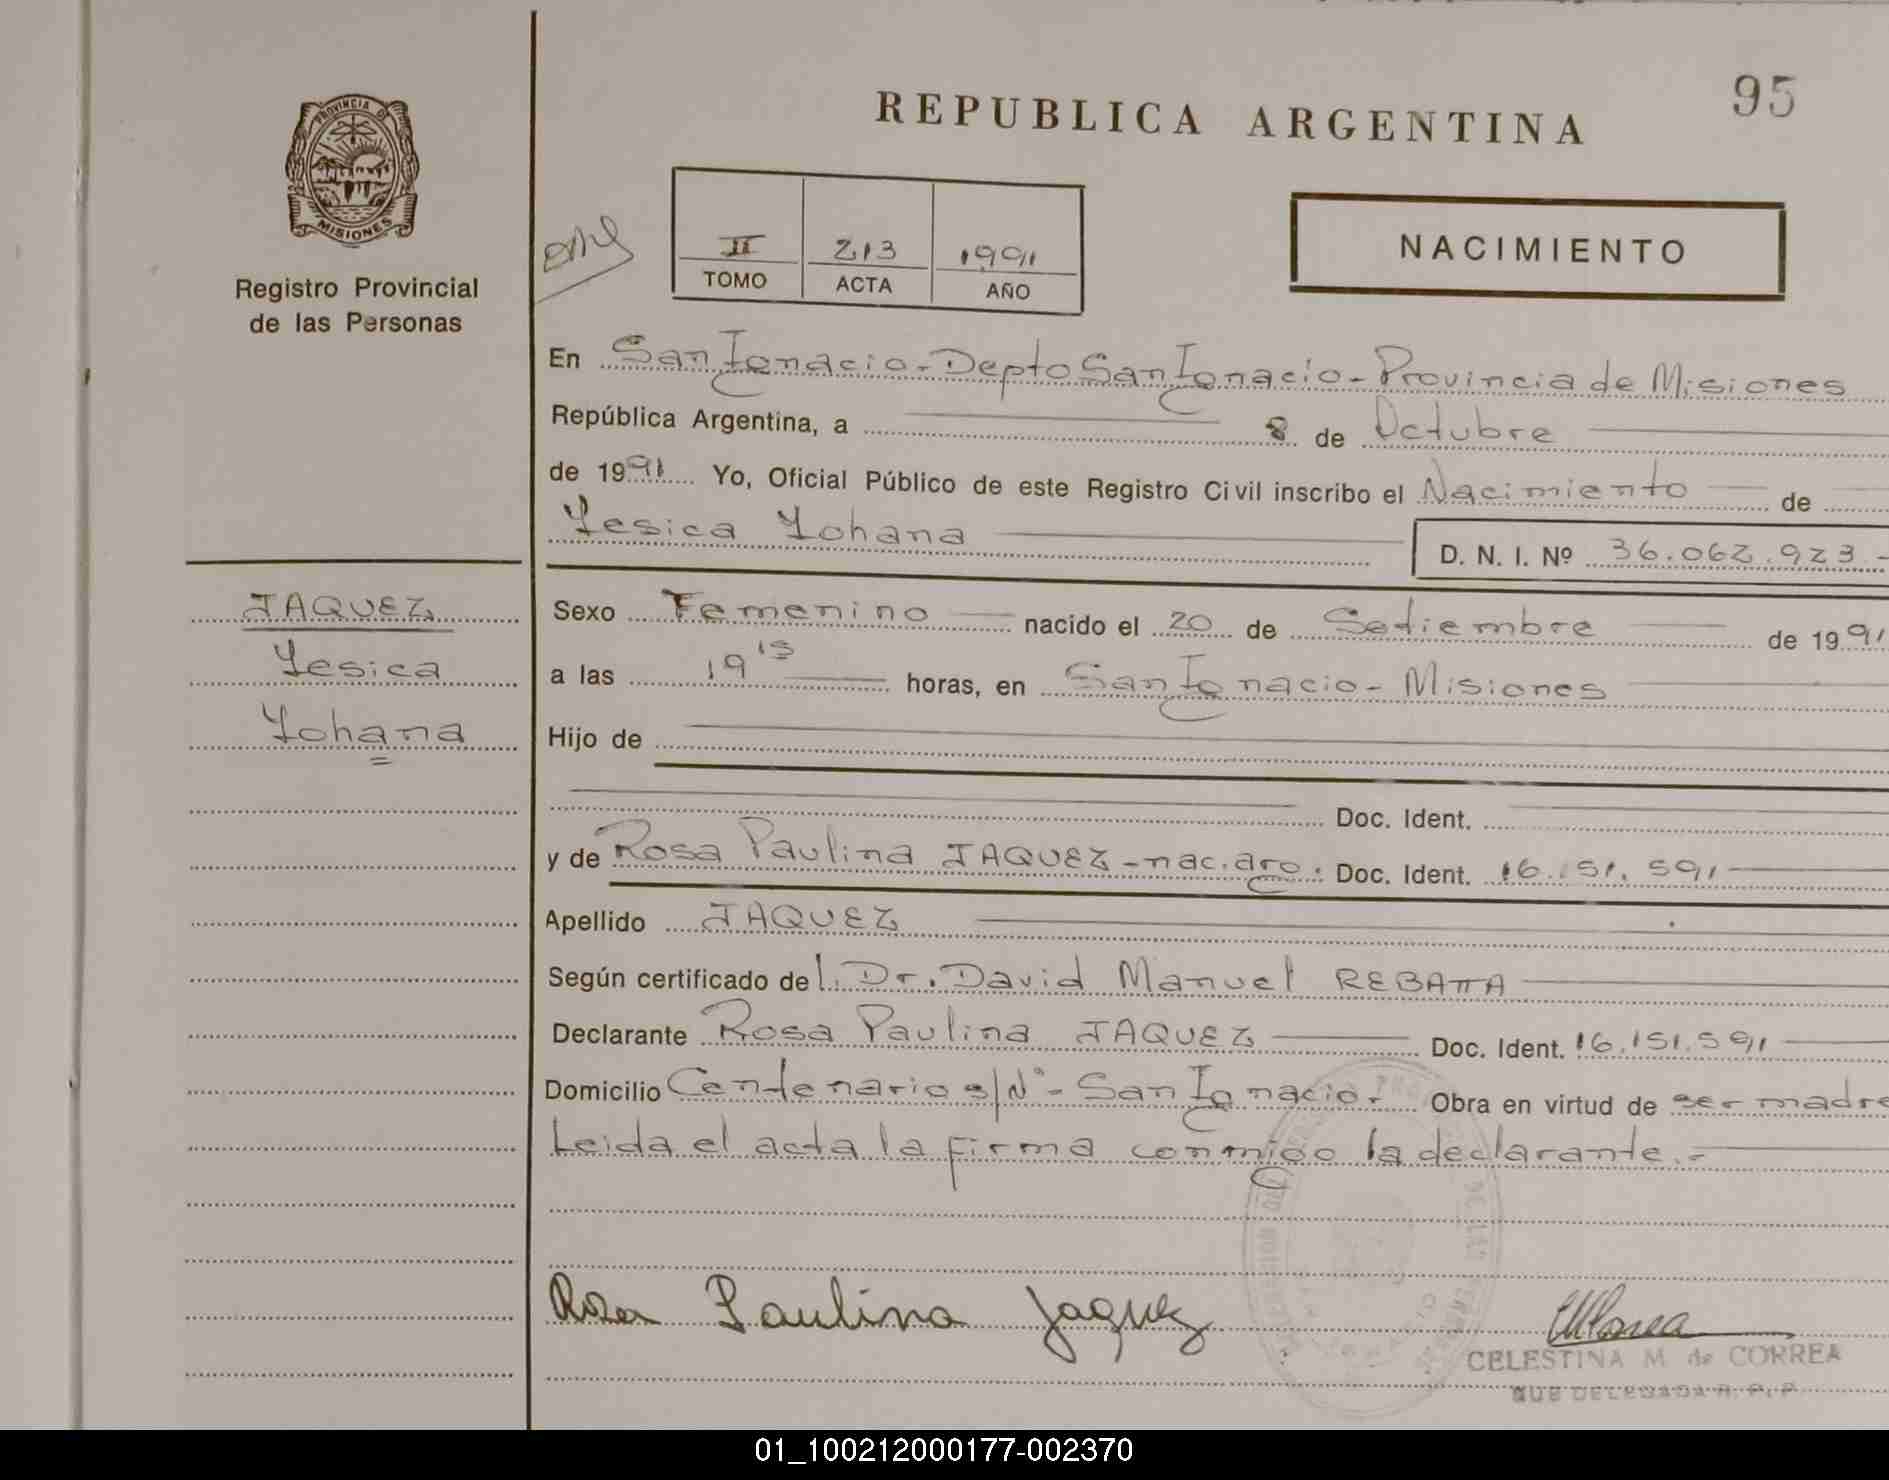 95
REPUBLICA ARGENTINA
PROVINCIA DE
MISIONES
Registro Provincial
de las Personas
II 213 1991
TOMO ACTA AÑO
NACIMIENTO
En San Ignacio - Depto San Ignacio - Provincia de Misiones
República Argentina, a 8 de Octubre
de 1991 Yo, Oficial Público de este Registro Civil inscribo el Nacimiento de
Yesica Yohana D. N. I. Nº 36.062.923.-
JAQUEZ
Yesica
Yohana
Sexo Femenino nacido el 20 de Setiembre de 1991
a las 19 15 horas, en San Ignacio - Misiones
Hijo de
Doc. Ident.
y de Rosa Paulina JAQUEZ - nac. arg. Doc. Ident. 16.151.591
Apellido JAQUEZ
Según certificado del Dr. David Manuel REBATTA
Declarante Rosa Paulina JAQUEZ Doc. Ident. 16.151.591
Domicilio Centenario s/Nº - San Ignacio. Obra en virtud de ser madre
Leida el acta la firma conmigo la declarante.-
Rosa Paulina Jaquez
CELESTINA M. de CORREA
DELEGADA R. P. P.
01_100212000177-002370